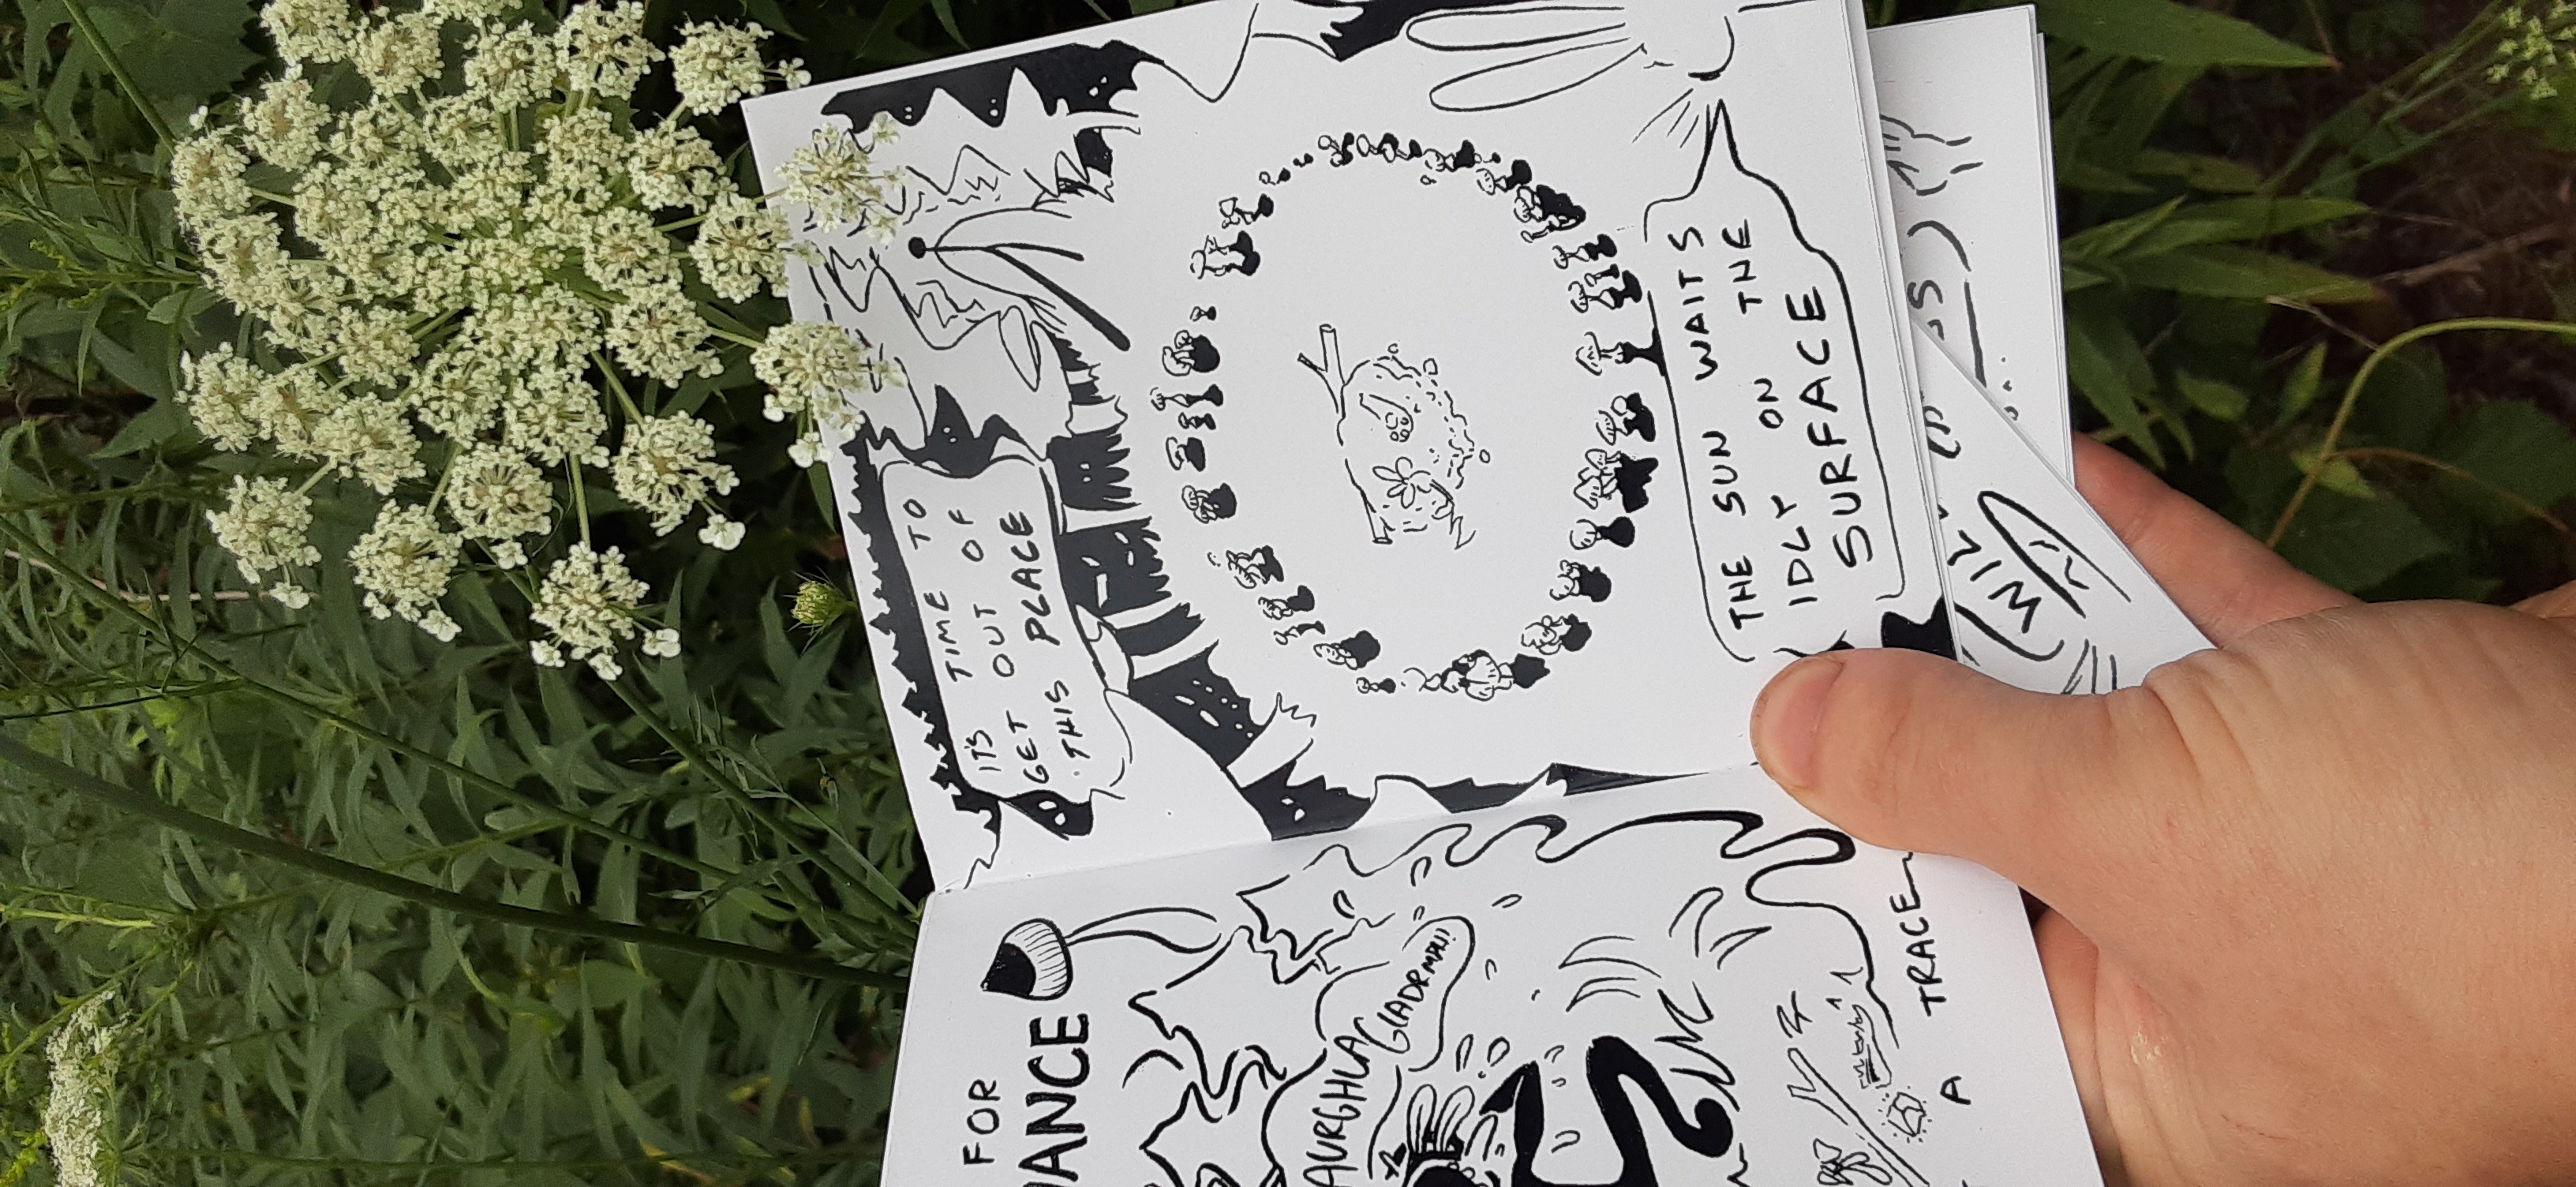 FOR
AURGHLA
GLADRMPH!
A TRACE
IT'S TIME TO
GET OUT OF
THIS PLACE
THE SUN WAITS
IDLY ON THE
SURFACE